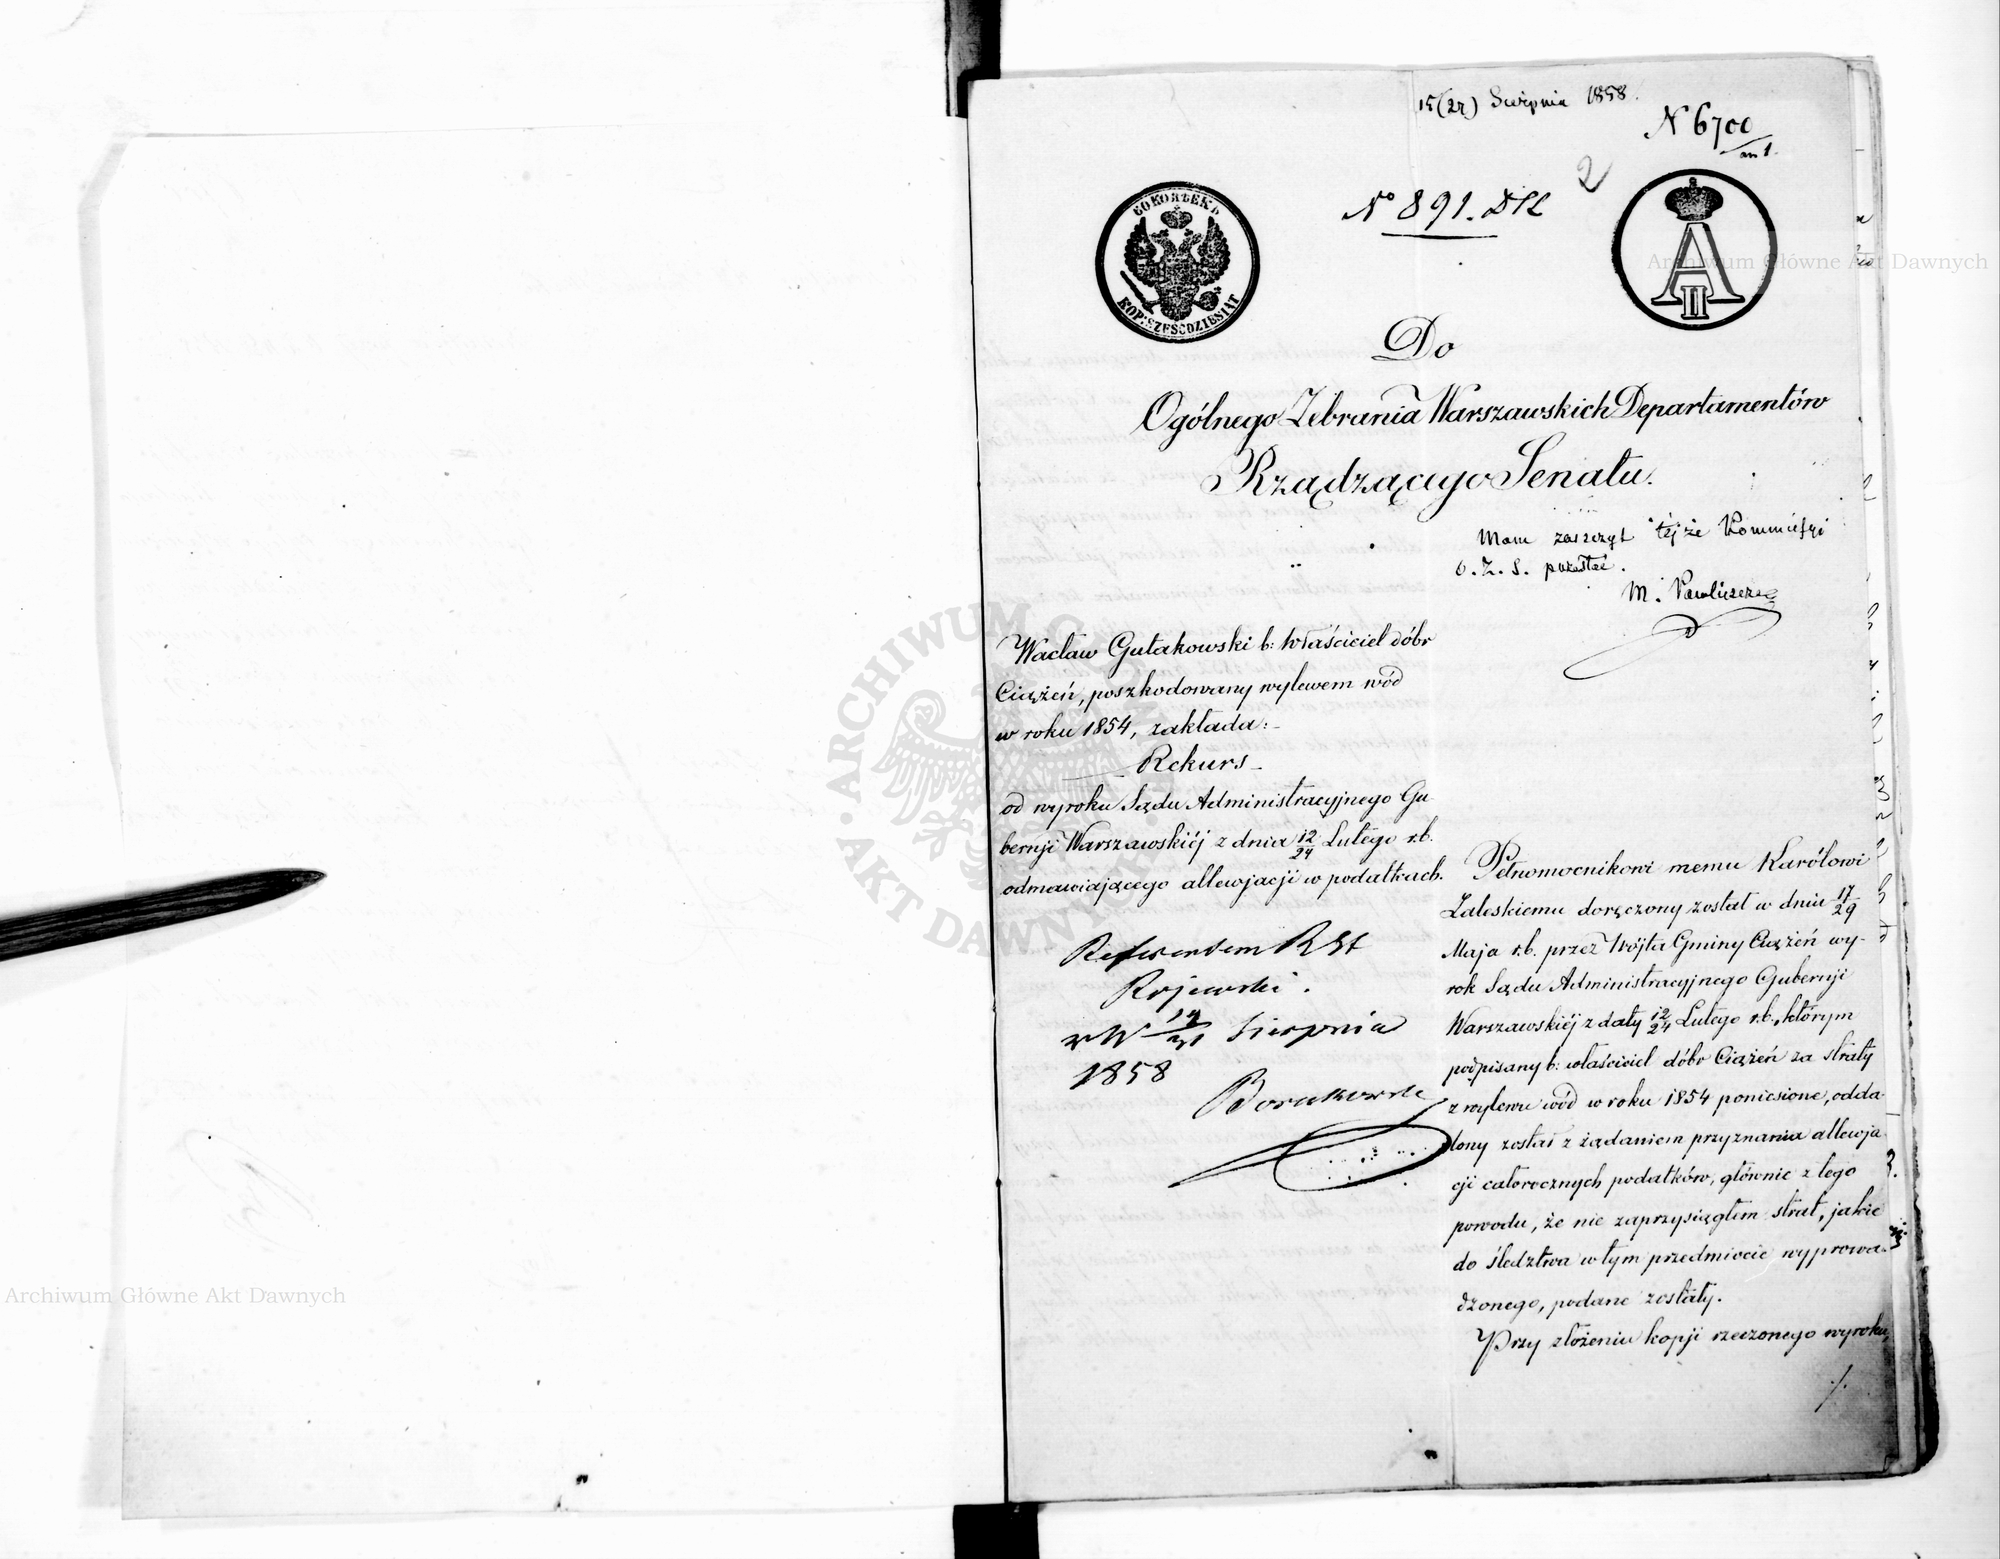 15(27) Sierpnia 1858.
N 6700
an 1.
2
Nº 891. DSL
60 KOПѢЕКЪ
KOP: SZEŚĆDZIESIĄT
A II
Do
Ogólnego Zebrania Warszawskich Departamentów
Rządzącego Senatu.
Mam zaszczyt tejże Kommissyi
O. Z. S. przesłać.
M. Pawliszczew
Wacław Gutakowski b: Właściciel dóbr
Ciążeń, poszkodowany wylewem wód
w roku 1854, zakłada:
Rekurs
od wyroku Sądu Administracyjnego Gu-
bernji Warszawskiéj z dnia 12/24 Lutego r.b.
odmawiającego allewjacji w podatkach.
Referentem RSt
Rojewski.
w W 19/31 Sierpnia
1858
Pełnomocnikowi memu Karólowi
Zaleskiemu doręczony został w dniu 17/29
Maja r.b. przez Wójta Gminy Ciążeń wy-
rok Sądu Administracyjnego Gubernji
Warszawskiéj z daty 12/24 Lutego r.b., którym
podpisany b: właściciel dóbr Ciążeń za straty
z wylewu wód w roku 1854 poniesione, odda-
lony został z żądaniem przyznania allewja-
cji całorocznych podatków, głównie z tego
powodu, że nie zaprzysiągłem strat, jakie
do śledztwa w tym przedmiocie wyprowa-
dzonego, podane zostały.
Przy złożeniu kopji rzeczonego wyroku,
./.
Archiwum Główne Akt Dawnych
Archiwum Główne Akt Dawnych
ARCHIWUM GŁÓWNE AKT DAWNYCH